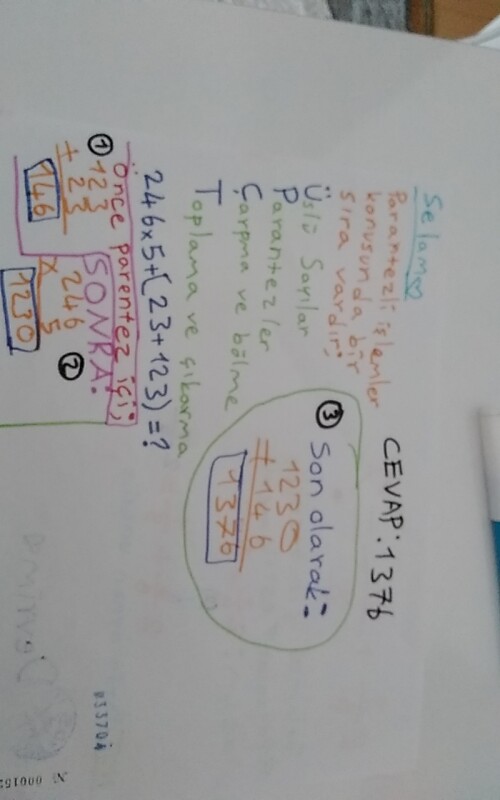 Selam♡
Parantezli işlemler
konusunda bir
sıra vardır;
Üslü Sayılar
Parantezler
Çarpma ve bölme
Toplama ve çıkarma
246x5+(23+123)=?
Önce parentez içi;
① 123
+ 23
146
SONRA:
②
246
x 5
1230
③ Son olarak:
1230
+ 146
1376
CEVAP:1376
033704
№ 000152